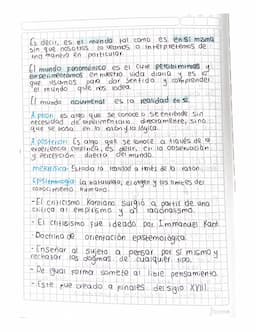 Es decir, es el mundo tal como es en sí mismo
sin que nosotros lo veamos o interpretemos de
una manera en particular.
El mundo fenoménico es el que percibimos y
experimentamos en nuestra vida diaria y es lo
que usamos para dar sentido y comprender
el mundo que nos rodea.
El mundo noumenal es la realidad en sí.
A priori: Es algo que se conoce o se entiende sin
necesidad de experimentarlo directamente, sino
que se basa en la razón y la lógica.
A posteriori: Es algo que se conoce a través de la
experiencia empírica, es decir, en la observación
y percepción directa del mundo.
Metafísica: Estudia la realidad a través de la razón.
Epistemología: La naturaleza, el origen y los límites del
conocimiento humano.
- El criticismo Kantiano surgió a partir de una
crítica al empirismo y al racionalismo.
- El criticismo fue ideado por Immanuel Kant.
- Doctrina de orientación epistemológica.
- Enseñar al sujeto a pensar por sí mismo y
rechazar los dogmas de cualquier tipo.
- De igual forma somete al libre pensamiento.
- Este fue creado a finales del siglo XVIII.